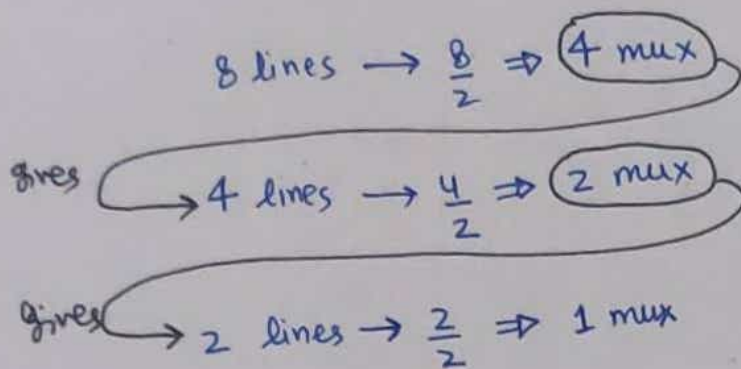 8 lines → 8/2 ⇒ 4 mux
gives → 4 lines → 4/2 ⇒ 2 mux
gives → 2 lines → 2/2 ⇒ 1 mux